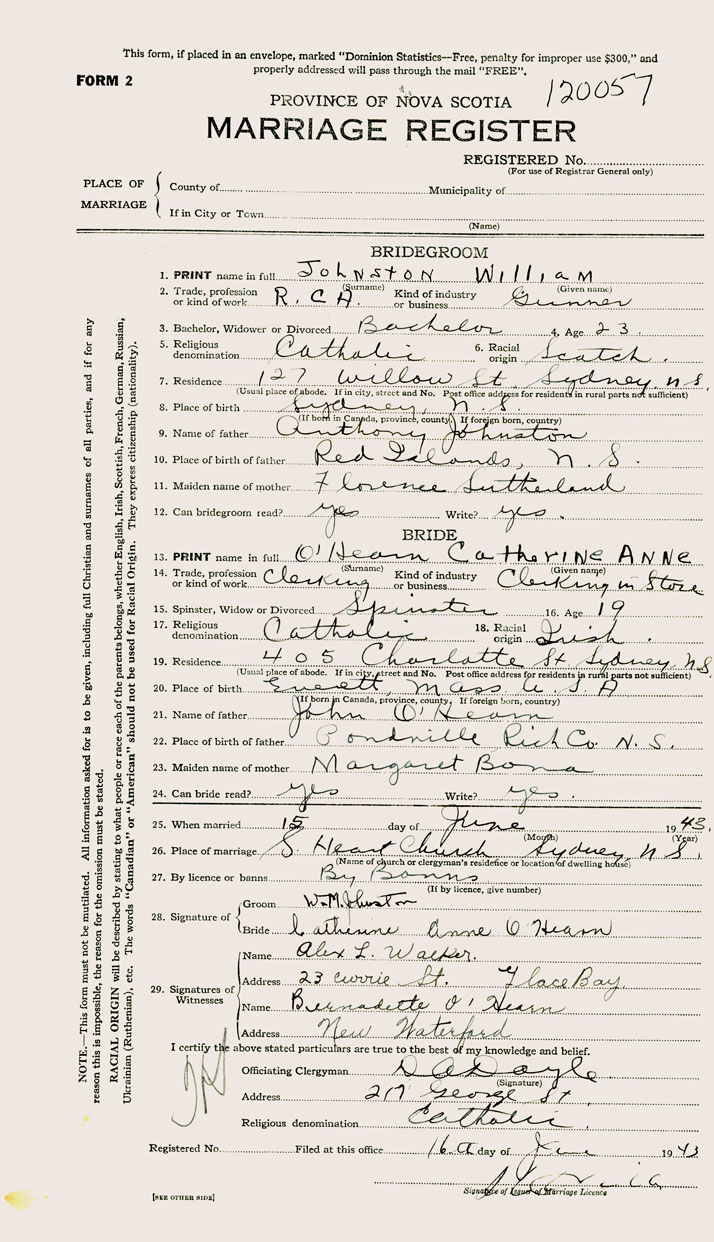 This form, if placed in an envelope, marked "Dominion Statistics—Free, penalty for improper use $300," and
properly addressed will pass through the mail "FREE".
FORM 2
120057
PROVINCE OF NOVA SCOTIA
MARRIAGE REGISTER
REGISTERED No.
(For use of Registrar General only)
PLACE OF MARRIAGE
County of Municipality of
If in City or Town
(Name)
BRIDEGROOM
1. PRINT name in full Johnston William
(Surname) (Given name)
2. Trade, profession or kind of work R.C.A. Kind of industry or business Gunner
3. Bachelor, Widower or Divorced Bachelor 4. Age 23
5. Religious denomination Catholic 6. Racial origin Scotch.
7. Residence 127 Willow St Sydney, N.S.
(Usual place of abode. If in city, street and No. Post office address for residents in rural parts not sufficient)
8. Place of birth Sydney, N.S.
(If born in Canada, province, county. If foreign born, country)
9. Name of father Anthony Johnston
10. Place of birth of father Red Islands, N.S.
11. Maiden name of mother Florence Sutherland
12. Can bridegroom read? yes Write? yes.
BRIDE
13. PRINT name in full O'Hearn Catherine Anne
(Surname) (Given name)
14. Trade, profession or kind of work Clerking Kind of industry or business Clerking in Store
15. Spinster, Widow or Divorced Spinster 16. Age 19
17. Religious denomination Catholic 18. Racial origin Irish.
19. Residence 405 Charlotte St Sydney, N.S.
(Usual place of abode. If in city, street and No. Post office address for residents in rural parts not sufficient)
20. Place of birth Everett, Mass U.S.A
(If born in Canada, province, county. If foreign born, country)
21. Name of father John O'Hearn
22. Place of birth of father Pondville Rich Co. N.S.
23. Maiden name of mother Margaret Bona
24. Can bride read? yes Write? yes.
25. When married 15 day of June 1943.
(Month) (Year)
26. Place of marriage S. Heart Church Sydney, N.S.
(Name of church or clergyman's residence or location of dwelling house)
27. By licence or banns By Banns
(If by licence, give number)
28. Signature of
Groom W.M. Johnston
Bride Catherine Anne O'Hearn
29. Signatures of Witnesses
Name Alex L. Walker.
Address 23 Currie St. Glace Bay.
Name Bernadette O'Hearn
Address New Waterford
I certify the above stated particulars are true to the best of my knowledge and belief.
Officiating Clergyman
(Signature)
Address 217 George St.
Religious denomination Catholic.
Registered No. Filed at this office 16 day of June 1943
Signature of Issuer of Marriage Licence
[SEE OTHER SIDE]
NOTE.—This form must not be mutilated. All information asked for is to be given, including full Christian and surnames of all parties, and if for any
reason this is impossible, the reason for the omission must be stated.
RACIAL ORIGIN will be described by stating to what people or race each of the parents belongs, whether English, Irish, Scottish, French, German, Russian,
Ukrainian (Ruthenian), etc. The words "Canadian" or "American" should not be used for Racial Origin. They express citizenship (nationality).